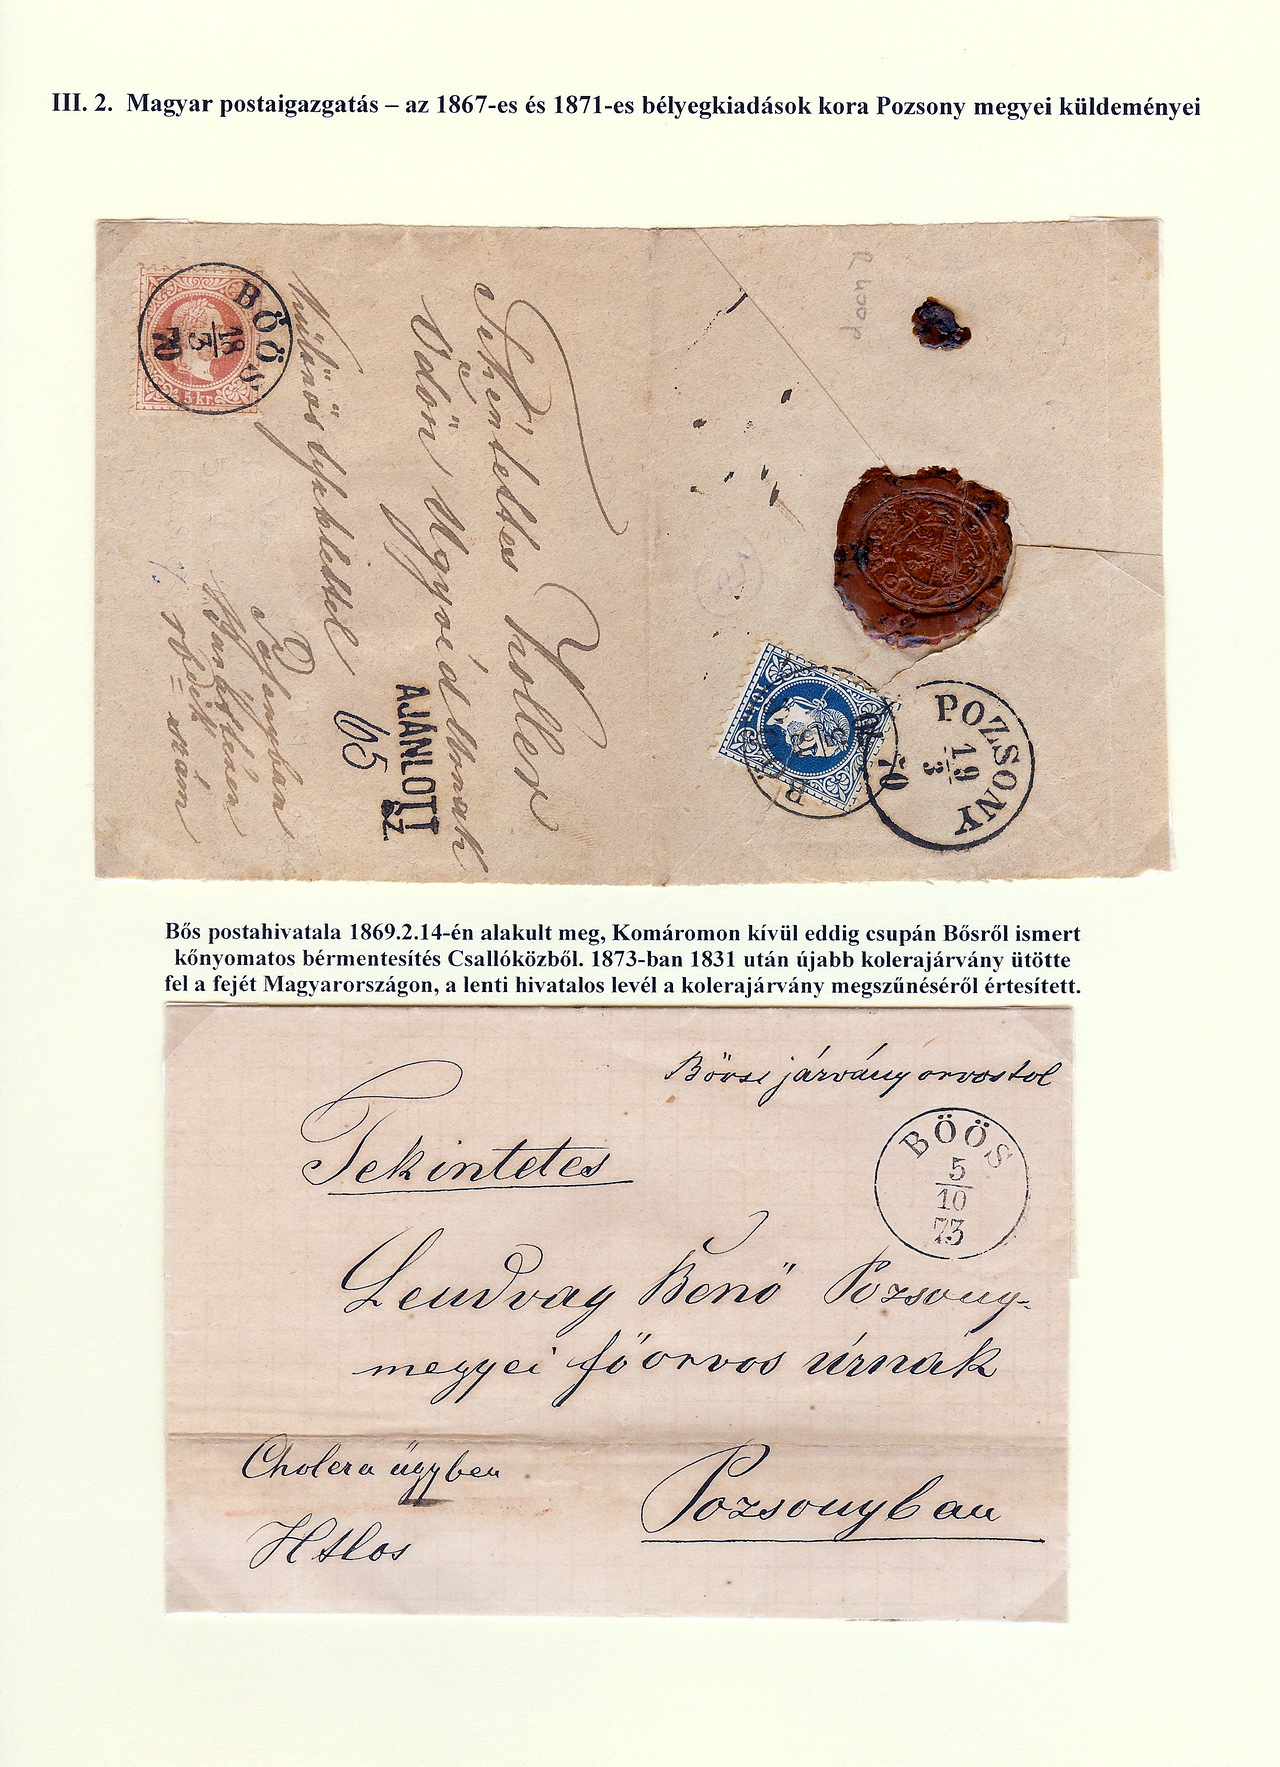 III. 2. Magyar postaigazgatás – az 1867-es és 1871-es bélyegkiadások kora Pozsony megyei küldeményei
BÖÖS
18
3
70
5 kr.
Koller
Ödön Ügyvéd Urnak
AJÁNLOTT
SZ
65
Pozsonyban
szám
10 kr.
POZSONY
19
3
70
Bős postahivatala 1869.2.14-én alakult meg, Komáromon kívül eddig csupán Bősről ismert
kőnyomatos bérmentesítés Csallóközből. 1873-ban 1831 után újabb kolerajárvány ütötte
fel a fejét Magyarországon, a lenti hivatalos levél a kolerajárvány megszűnéséről értesített.
Böösi járvány orvostol
BÖÖS
5
10
73
Tekintetes
Lendvay Benő Pozsony-
megyei főorvos úrnak
Cholera ügyben
Pozsonyban
Htlos